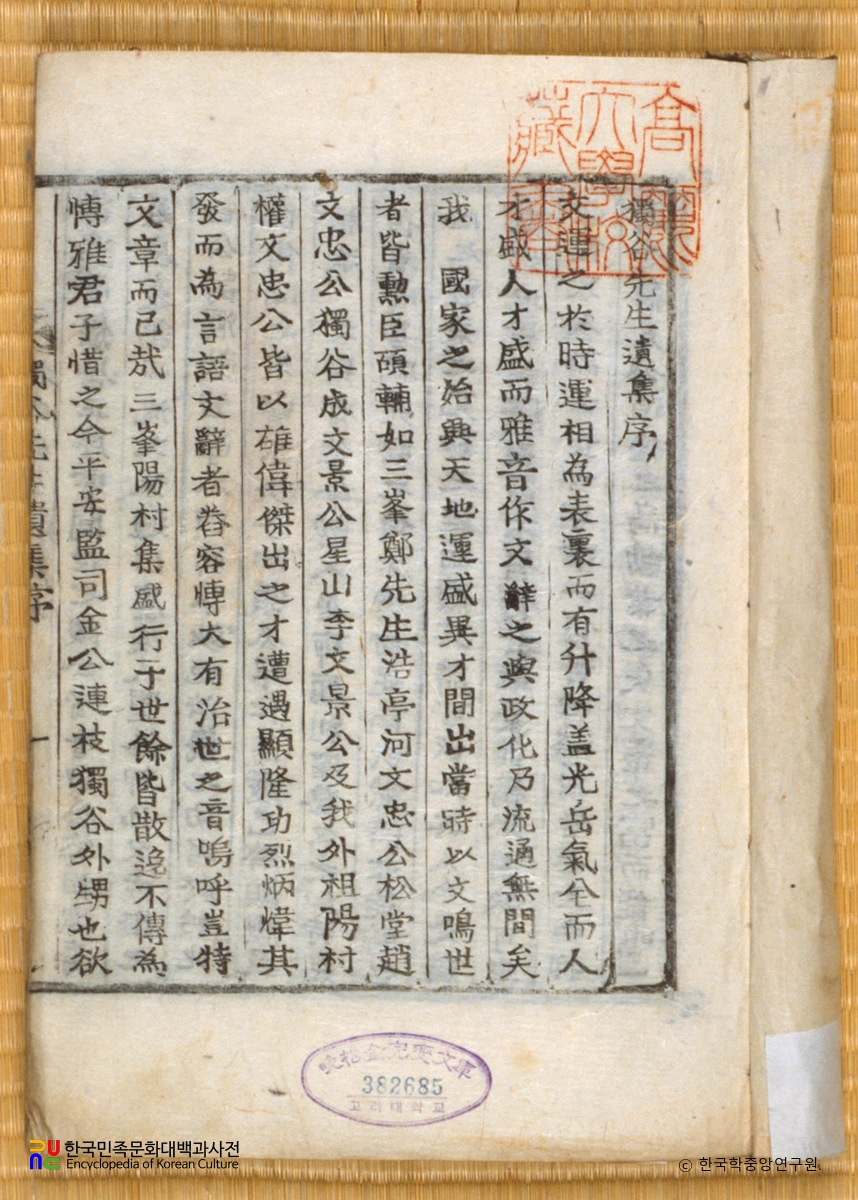 獨谷先生遺集序
文運之於時運相為表裏而有升降盖光岳氣全而人
才盛人才盛而雅音作文辭之與政化乃流通無間矣
我 國家之始興天地運盛異才間出當時以文鳴世
者皆勳臣碩輔如三峯鄭先生浩亭河文忠公松堂趙
文忠公獨谷成文景公星山李文景公及我外祖陽村
權文忠公皆以雄偉傑出之才遭遇顯隆功烈炳煒其
發而為言語文辭者舂容愽大有治世之音嗚呼豈特
文章而已哉三峯陽村集盛行于世餘皆散逸不傳為
愽雅君子惜之今平安監司金公連枝獨谷外甥也欲
獨谷先生遺集序 一
高麗
大學校
藏書
金完燮文庫
382685
고려대학교
한국민족문화대백과사전
Encyclopedia of Korean Culture
© 한국학중앙연구원